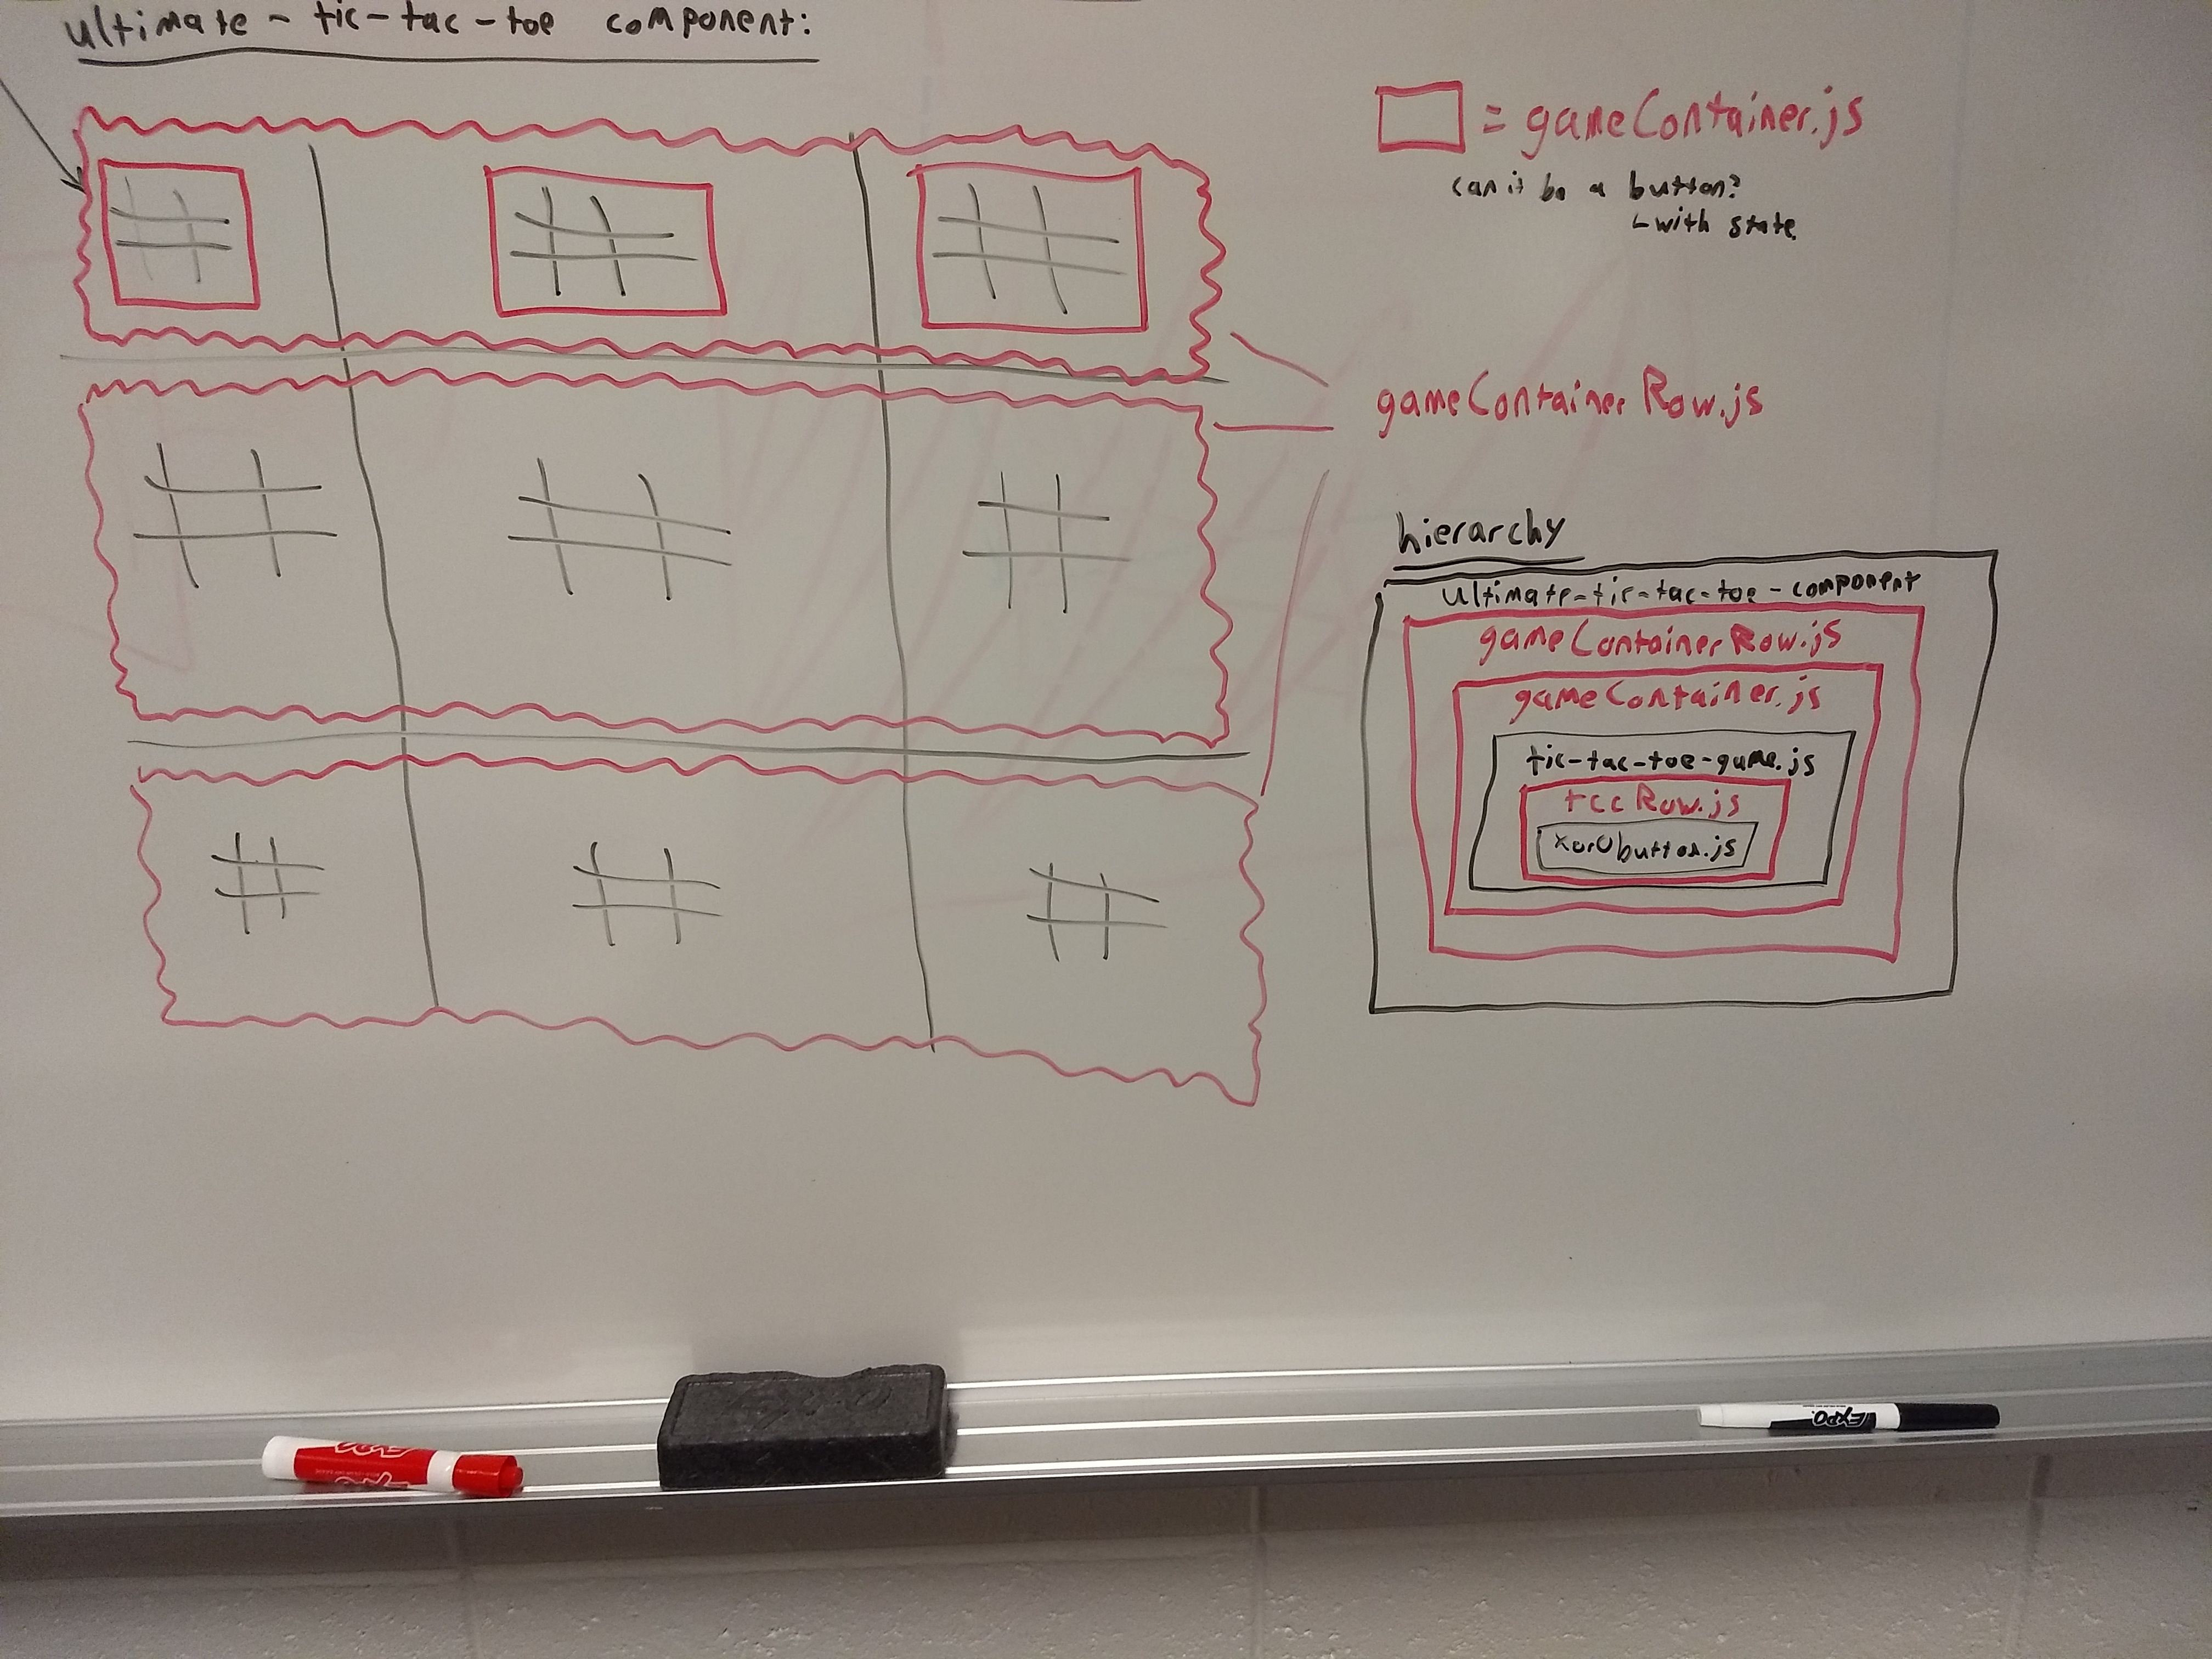 ultimate - tic-tac-toe component:
= gameContainer.js
can it be a button?
with state
gameContainerRow.js
hierarchy
ultimate-tic-tac-toe-component
gameContainerRow.js
gameContainer.js
tic-tac-toe-game.js
tccRow.js
xorObutton.js
EXPO